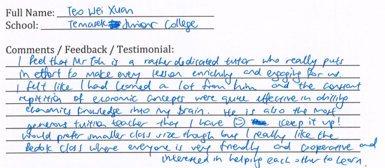 Full Name: Teo Wei Xuan
School: Temasek Junior College
Comments / Feedback / Testimonial:
I feel that Mr Toh is a rather dedicated tutor who really puts
in effort to make every lesson enriching and engaging for us.
I felt like I had learned a lot from him and the constant
repitition of economic concepts were quite effective in drilling
economics knowledge into my brain. He is also the most
generous tuition teacher that I have ☺ keep it up! I
would prefer smaller class size though but I really like the
Bedok class where everyone is very friendly and cooperative and
interested in helping each other to learn.